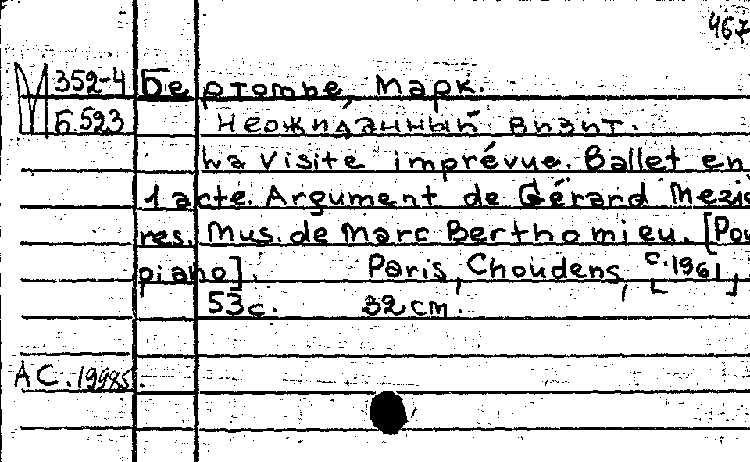 467
М 352-4 Бертомье, Марк.
Б.523 Неожиданный визит.
La Visite imprévue. Ballet en
1 acte. Argument de Gérard Mezie
res. Mus. de Marc Berthomieu. [Pou
piano]. Paris, Choudens, [c.1961],
53с. 32 см.
АС.19985.